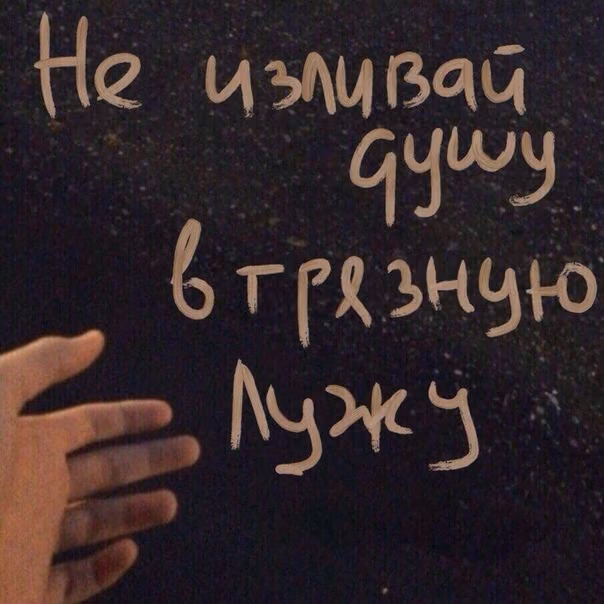 Не изливай
душу
в грязную
лужу